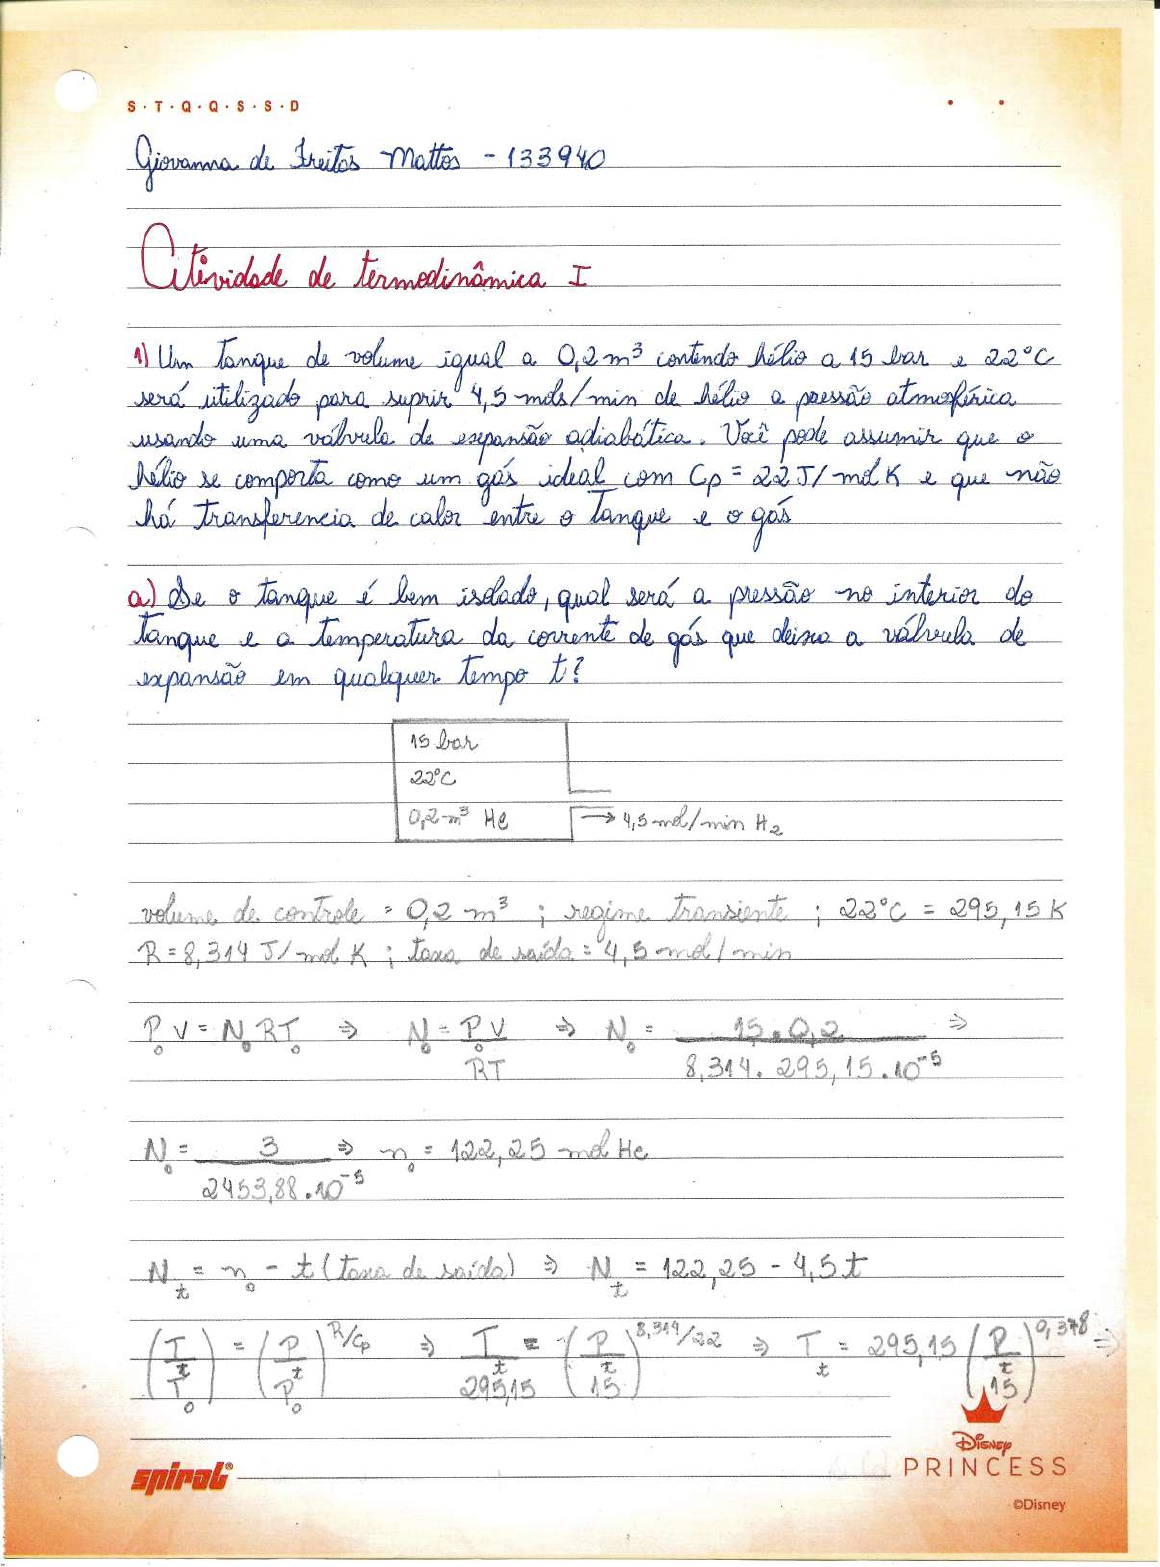 S · T · Q · Q · S · S · D
Giovanna de Freitas Mattos - 133940
Atividade de termodinâmica I
1) Um tanque de volume igual a 0,2 m³ contendo hélio a 15 bar e 22°C
será utilizado para suprir 4,5 mols/min de hélio a pressão atmosférica
usando uma válvula de expansão adiabática. Você pode assumir que o
hélio se comporta como um gás ideal com Cp = 22 J/mol K e que não
há transferencia de calor entre o tanque e o gás
a) Se o tanque é bem isolado, qual será a pressão no interior do
tanque e a temperatura da corrente de gás que deixa a válvula de
expansão em qualquer tempo t?
15 bar
22°C
0,2 m³ He → 4,5 mol/min H₂
volume de controle = 0,2 m³ ; regime transiente ; 22°C = 295,15 K
R = 8,314 J/mol K ; taxa de saída = 4,5 mol/min
P₀V = N₀RT₀ ⇒ N₀ = P₀V/RT ⇒ N₀ = 15 . 0,2 / 8,314 . 295,15 . 10⁻⁵ ⇒
N₀ = 3 / 2453,88 . 10⁻⁵ ⇒ n₀ = 122,25 mol He
N_t = n₀ - t (taxa de saída) ⇒ N_t = 122,25 - 4,5 t
(T_t/T₀) = (P_t/P₀)^R/Cp ⇒ T_t/295,15 = (P_t/15)^8,314/22 ⇒ T_t = 295,15 (P_t/15)^0,378 ⇒
spiral®
Disney
PRINCESS
©Disney